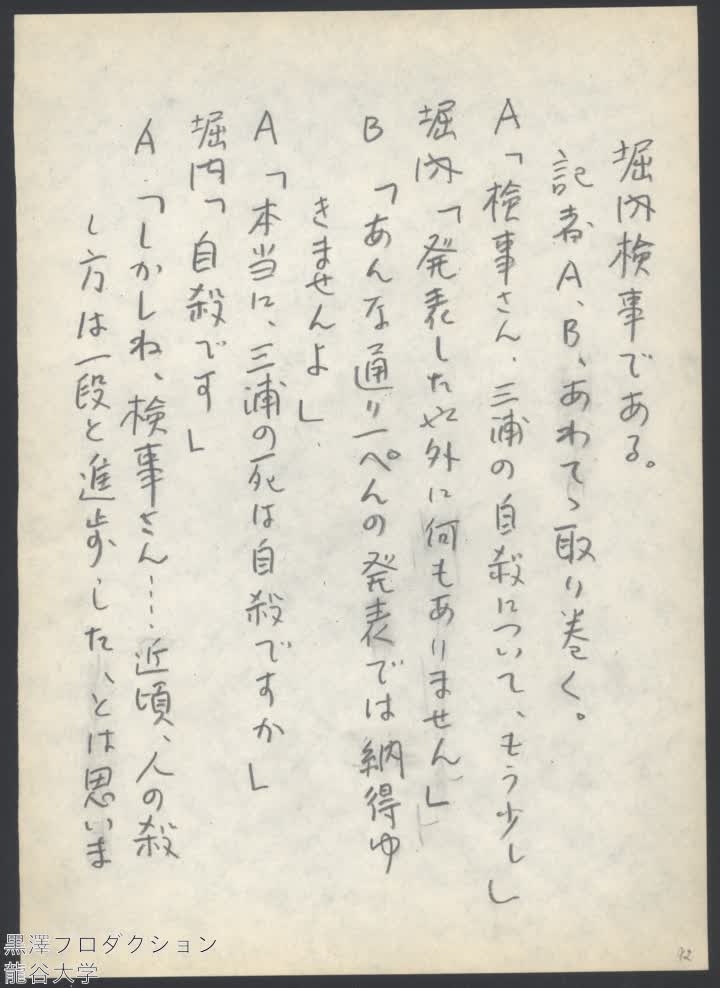 堀内検事である。
記者A、B、あわてゝ取り巻く。
A「検事さん、三浦の自殺について、もう少し」
堀内「発表した以外に何もありません」
B「あんな通り一ぺんの発表では納得ゆ
きませんよ」
A「本当に、三浦の死は自殺ですか」
堀内「自殺です」
A「しかしね、検事さん……近頃、人の殺
し方は一段と進歩した、とは思いま
92
黒澤プロダクション
龍谷大学